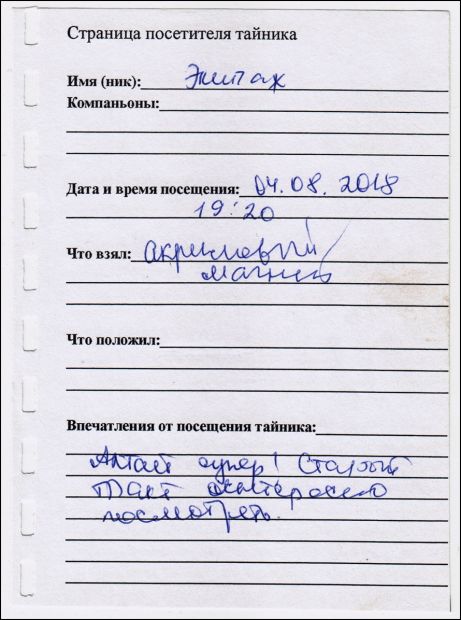 Страница посетителя тайника
Имя (ник): Экипаж
Компаньоны:
Дата и время посещения: 04.08.2018
19:20
Что взял: акриловый
магнит
Что положил:
Впечатления от посещения тайника:
Алтай супер! Старый
тракт интересно
посмотреть.